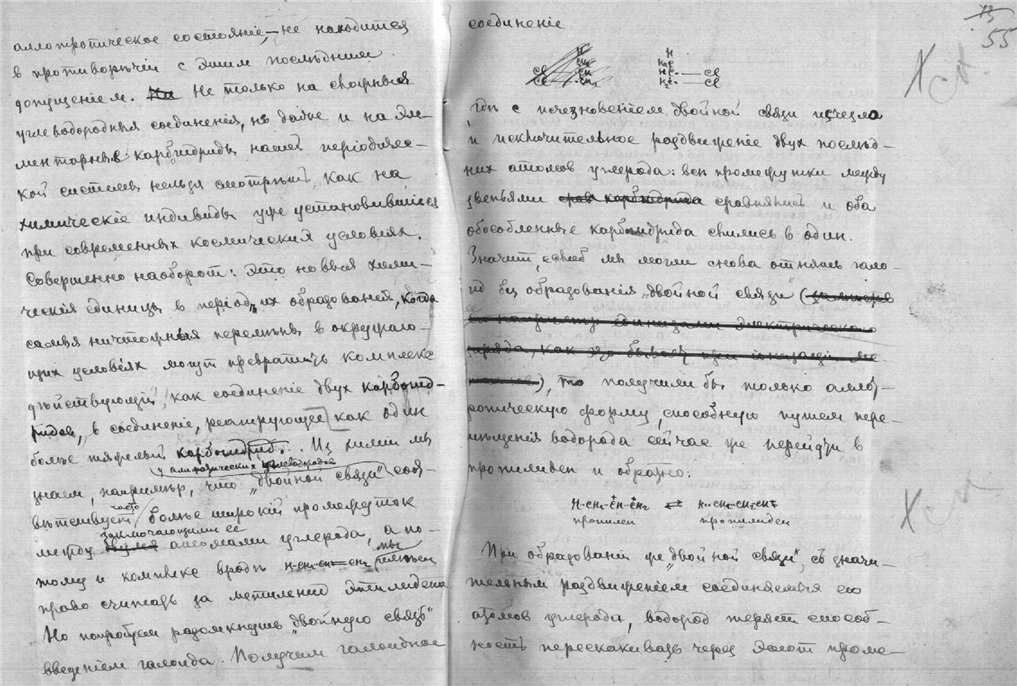 аллотропическое состояніе, — не находится
в противорѣчіи с этим послѣдним
допущеніем. Не только на сложныя
углеводородныя соединенія, но даже и на эле-
ментарныя карбогидриды нашей періодичес-
кой системы нельзя смотрѣть, как на
химическіе индивиды уже установившіеся
при современных космических условіях.
Совершенно наоборот: это новыя хими-
ческія единицы в період их образованія, когда
самыя ничтожныя перемѣны в окружаю-
щих условіях могут превратить комплекс
дѣйствующій, как соединеніе двух карбогид-
ридов, в соединеніе, реагирующее как один
болѣе тяжелый карбогидрид. Из химіи мы
у алифатических углеводородов
знаем, напримѣр, что „двойной связи“ соот-
вѣтствует часто болѣе широкій промежуток
между заключающими ее атомами углерода, а по-
тому и комплекс вродѣ H-CH₂-CH=CH₂ мы имѣем
право считать за метиленид этилидена
Но попробуем разомкнуть „двойную связь“
введеніем галоида. Получим галоидное
соединеніе
H
H
Cl Cl
Cl Cl
гдѣ с исчезновеніем двойной связи исчезло
и исключительное раздвиженіе двух послѣд-
них атомов углерода: всѣ промежутки между
звеньями сравнялись и оба
обособленные карбогидрида слились в один.
Значит, еслиб мы могли снова отнять гало-
ид без образованія „двойной связи“
, то получили бы только алло-
ропическую форму, способную путем пере-
мѣщенія водорода сейчас же перейти в
пропилиден и обратно:
H-CH₂-CH-CH₂ ⇄ H-CH₂-CH₂-CH
пропилен пропилиден
При образованіи же „двойной связи“, съ значи-
тельным раздвиженіем соединяемых ею
атомов углерода, водород теряет способ-
ность перескакивать через этот проме-
55
Х см.
Х см.